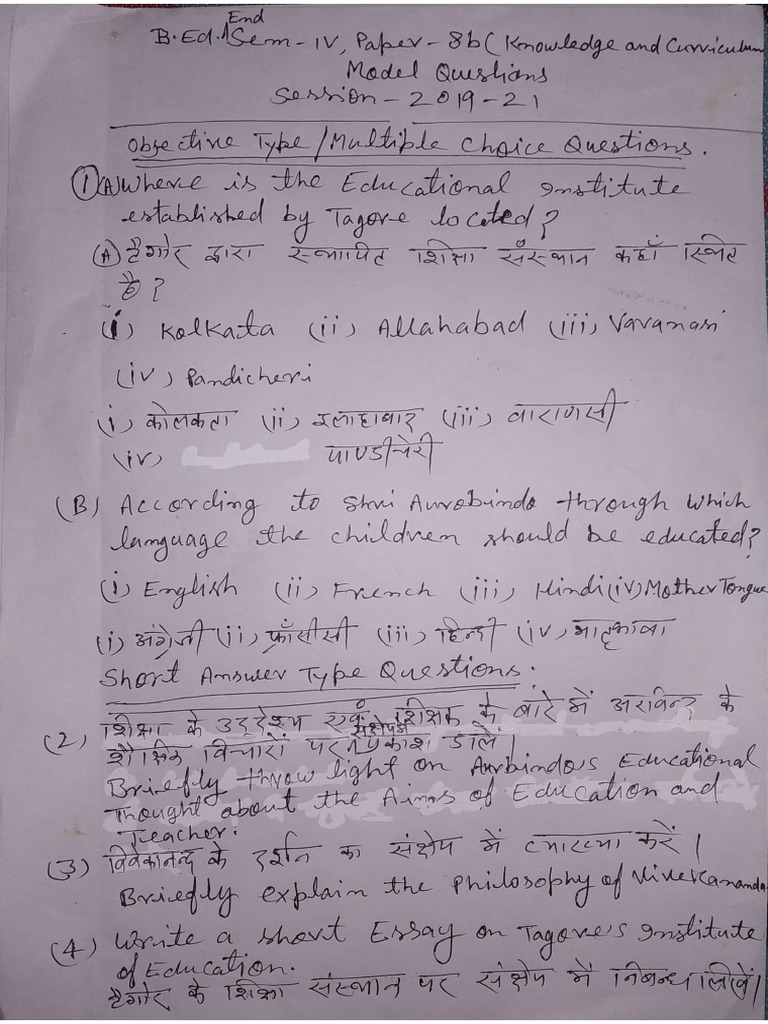 End
B.Ed. Sem - IV, Paper - 8b (Knowledge and Curriculum
Model Questions
Session - 2019-21
Objective Type / Multiple Choice Questions.
① (A) Where is the Educational Institute
established by Tagore located?
(A) टैगोर द्वारा स्थापित शिक्षा संस्थान कहाँ स्थित
है?
(i) Kolkata (ii) Allahabad (iii) Varanasi
(iv) Pandicheri
(i) कोलकता (ii) इलाहाबाद (iii) वाराणसी
(iv) पाण्डीचेरी
(B) According to Shri Aurobindo through which
language the children should be educated?
(i) English (ii) French (iii) Hindi (iv) Mother Tongue
(i) अंग्रेजी (ii) फ्राँसीसी (iii) हिन्दी (iv) मातृभाषा
Short Answer Type Questions.
(2) शिक्षा के उद्देश्य एवं शिक्षक के बारे में अरविन्द के
शैक्षिक विचारों पर संक्षेप में प्रकाश डालें।
Briefly throw light on Aurbindo's Educational
Thought about the Aims of Education and
Teacher.
(3) विवेकानन्द के दर्शन का संक्षेप में व्याख्या करें।
Briefly explain the Philosophy of Vivekananda
(4) Write a short Essay on Tagore's Institute
of Education.
टैगोर के शिक्षा संस्थान पर संक्षेप में निबन्ध लिखें।